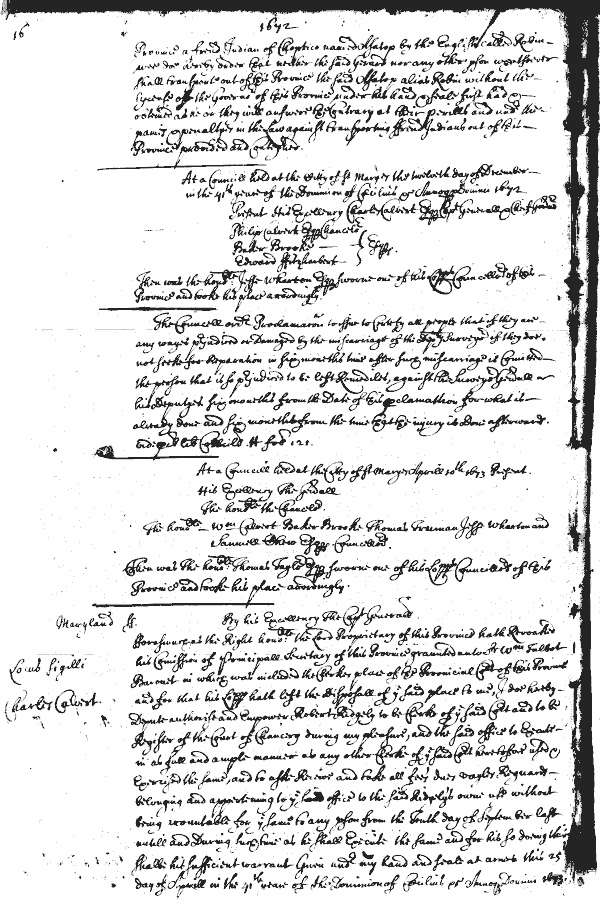 16
1672
Province a freind Indian of Choptico named Assatop by the English called Robin
doe hereby order that neither the said Gerard nor any other pson whatsoever
shall transporte out of this Province the said Assatop alias Robin without the
Lycence of the Governor of this Province under his hand & seale first had &
obteined as he or they will answere the contrary at their perills and undr the
paines & penaltyes in the law against transporting freind Indians out of this
Province provided and
At a Councill held at the Citty of St Maryes the twelveth day of December
in the 41th yeare of the Dominion of Cæcilius &c Annoq Domini 1672
Present His Excellency Charles Calvert Esqr Capt Generall & Cheif
Philip Calvert Esqr Chancelr
Baker Brooke
Edward Fitzherbert
Esqrs
Then was the honble Jesse Wharton Esqr sworne one of his Lopps Councellors of this
Province and tooke his place accordingly
The Councell ordr Proclamacon to issue to Certify all people that if they are
any wayes prejudiced or Damaged by the miscarriage of the Depty Surveyrs if they doe
not seeke for Reparation in six moneths time after such miscarriage is Comitted
the person that is so prejudiced to be left Remediles, against the Surveyr Genrall or
his Deputyes six moneths from the Date of this proclamathon for what is
already done and six moneths from the time that the injury is Done afterward.
vide lib fol 121.
At a Councill held at the Citty of St Maryes Aprill 10th 1673 Present.
His Excellency The Genrall
The honble the Chancelr
The honble Wm Calvert Baker Brooke Thomas Trueman Jesse Wharton and
Samuell Chew Esqrs Councellors
Then was the honble Thomas Esqr sworne one of his Lopps Councellors of this
Province and tooke his place accordingly
Maryland ss. By his Excellency The Capt Generall
Locus Sigilli
Charles Calvert.
Forasmuch as the Right honoble the Lord Proprietary of this Province hath Revoaked
his Comission of Principall Secretary of this Province graunted unto Sr Wm Talbot
Baronet in which was included the Clerkes place of the Provinciall Cort of this Province
and for that his Lopp hath left the disposall of ye said place to me, I doe hereby
Depute authorise and Empower Robert Ridgely to be Clerke of ye said Cort and to be
Register of the Court of Chancery during my pleasure, and the said office to Execute
in as full and ample manner as any other Clerke of ye said Cort heretofore used &
Exercised the same, and to aske Receive and take all fees dues Wages Rewards
belonging and apperteining to ye said office to the said Ridgelys owne use without
being accountable for ye same to any pson from the Tenth day of September last
untill and During such time as he shall Execute the same and for his so doeing this
shalbe his sufficient warrant Given undr my hand and seale at armes this 25
day of Aprill in the 41th yeare of the Dominion of Cæcilius &c Annoq Domini 1673